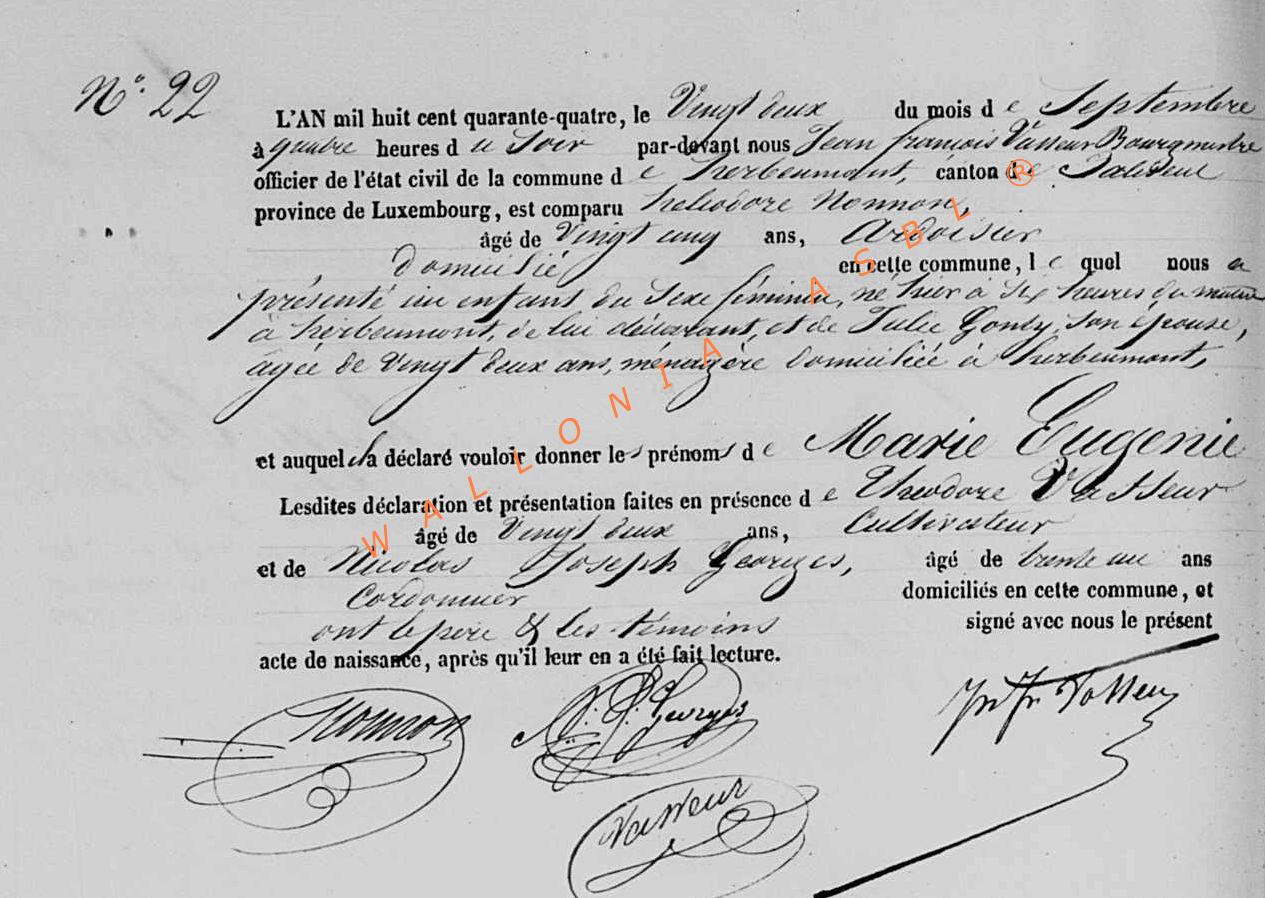 N° 22
L'AN mil huit cent quarante-quatre, le Vingt deux du mois de Septembre
à quatre heures du Soir par-devant nous Jean françois Vasseur Bourgmestre
officier de l'état civil de la commune de herbeumont, canton de Paliseul
province de Luxembourg, est comparu théodore Nonnon,
âgé de Vingt cinq ans, Ardoisier
domicilié en cette commune, lequel nous a
présenté un enfant du Sexe féminin, né hier à six heures du matin
à herbeumont, de lui déclarant, et de Julie Gonry, son épouse,
agée de Vingt deux ans, ménagère domiciliée à herbeumont,
et auquel il a déclaré vouloir donner les prénoms de Marie Eugenie
Lesdites déclaration et présentation faites en présence de Théodore Vasseur
âgé de Vingt deux ans, Cultivateur
et de Nicolas Joseph Georges, âgé de trente un ans
Cordonnier domiciliés en cette commune, et
ont le père & les témoins signé avec nous le présent
acte de naissance, après qu'il leur en a été fait lecture.
Nonnon N. J. Georges Jn Fr Vasseur
Vasseur
WALLONIA ASBL ®